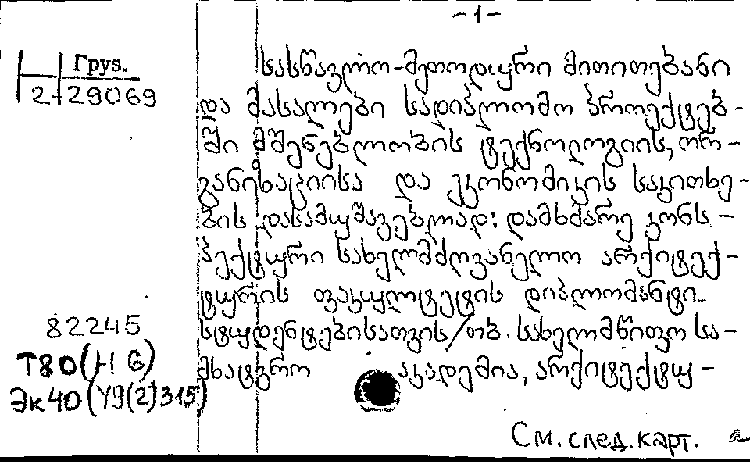 -1-
Груз.
2-29069
სასწავლო-მეთოდური მითითებანი
და მასალები სადიპლომო პროექტებ-
ში მშენებლობის ტექნოლოგიის, ორ-
განიზაციისა და ეკონომიკის საკითხე-
ბის დასამუშავებლად: დამხმარე კონს-
პექტური სახელმძღვანელო არქიტექ-
ტურის ფაკულტეტის დიპლომანტი
სტუდენტებისათვის / თბ. სახელმწიფო სა-
მხატვრო აკადემია, არქიტექტუ-
82245
Т80(Н6)
Эк40(У9(2)315)
См. след. карт.